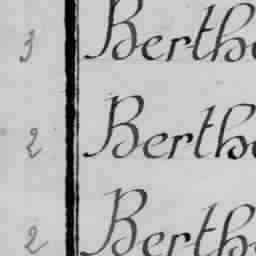 3 Berthe
2 Berthe
2 Berthe